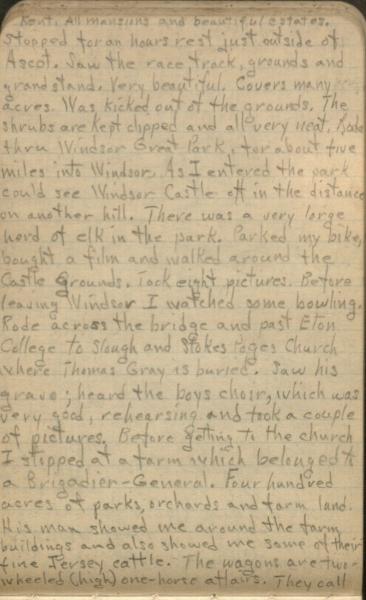 Kent. All mansions and beautiful estates.
Stopped for an hours rest just outside of
Ascot. Saw the race track, grounds and
grandstand. Very beautiful. Covers many
acres. Was kicked out of the grounds. The
shrubs are kept clipped and all very neat. Rode
thru Windsor Great Park, for about five
miles into Windsor. As I entered the park
could see Windsor Castle off in the distance
on another hill. There was a very large
herd of elk in the park. Parked my bike,
bought a film and walked around the
Castle Grounds. Took eight pictures. Before
leaving Windsor I watched some bowling.
Rode across the bridge and past Eton
College to Slough and Stokes Poges Church
where Thomas Gray is buried. Saw his
grave; heard the boys choir, which was
very good, rehearsing and took a couple
of pictures. Before getting to the church
I stopped at a farm which belonged to
a Brigadier-General. Four hundred
acres of parks, orchards and farm land.
His man showed me around the farm
buildings and also showed me some of their
fine Jersey cattle. The wagons are two-
wheeled (high) one-horse affairs. They call